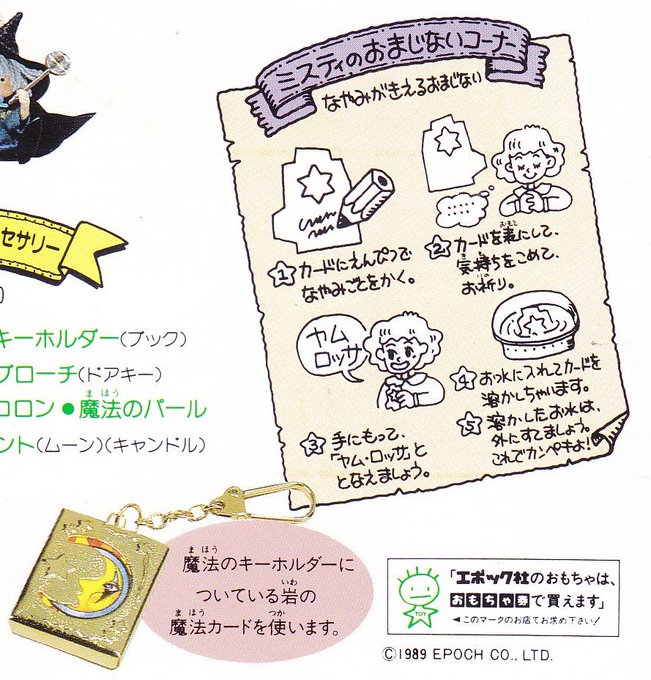 ミスティのおまじないコーナー
なやみがきえるおまじない
1 カードにえんぴつで
なやみごとをかく。
2 カードを表にして、
おもて
気持ちをこめて、
お祈り。
ヤム
ロッサ
3 手にもって、
「ヤム・ロッサ」と
となえましょう。
4 お水に入れてカードを
溶かしちゃいます。
5 溶かしたお水は、
外にすてましょう。
これでカンペキよ!
セサリー
キーホルダー(ブック)
ブローチ(ドアキー)
コロン●魔法のパール
まほう
ント(ムーン)(キャンドル)
まほう
魔法のキーホルダーに
いわ
ついている岩の
まほう つか
魔法カードを使います。
TOY
「エポック社のおもちゃは、
おもちゃ券で買えます」
◀このマークのお店でお求め下さい!
©1989 EPOCH CO., LTD.